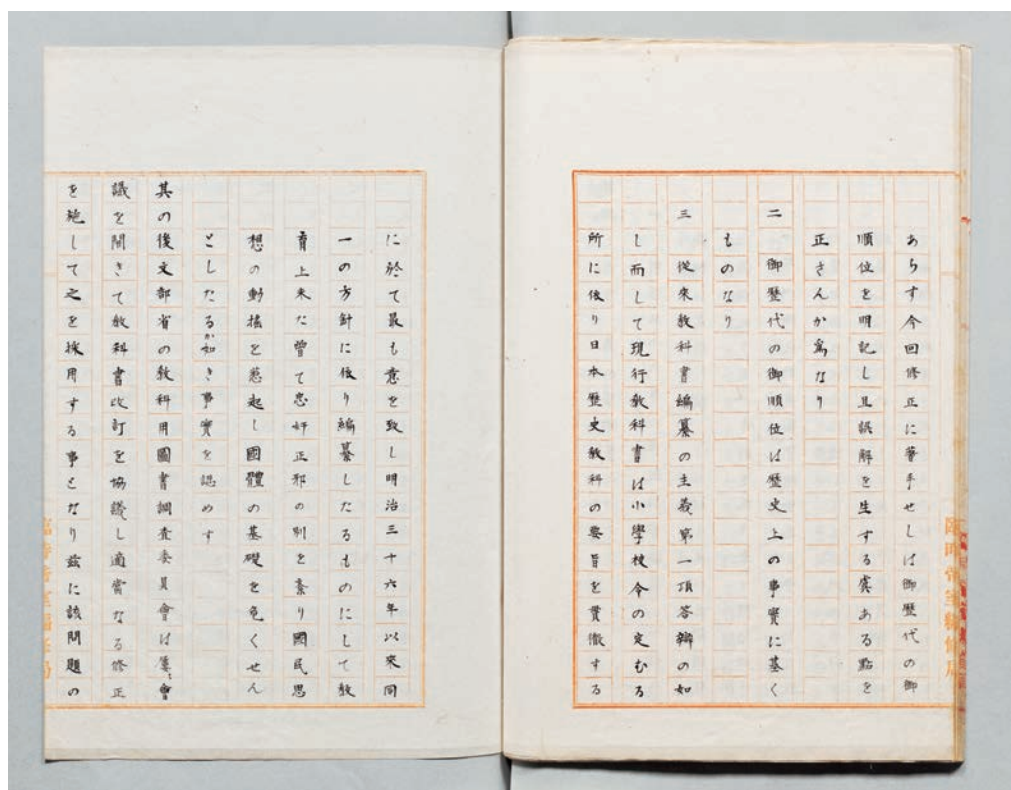 あらす今回修正に著手せしは御歷代の御
順位を明記し且誤解を生する虞ある點を
正さんか爲なり
二 御歷代の御順位は歷史上の事實に基く
ものなり
三 從來敎科書編纂の主義第一項答辯の如
し而して現行敎科書は小學校令の定むる
所に依り日本歷史敎科の要旨を貫徹する
に於て最も意を致し明治三十六年以來同
一の方針に依り編纂したるものにして敎
育上未た曾て忠奸正邪の別を紊り國民思
想の動搖を惹起し國體の基礎を危くせん
としたるか如き事實を認めす
其の後文部省の敎科用圖書調査委員會は屢〻會
議を開きて敎科書改訂を協議し適當なる修正
を施して之を採用する事となり玆に該問題の